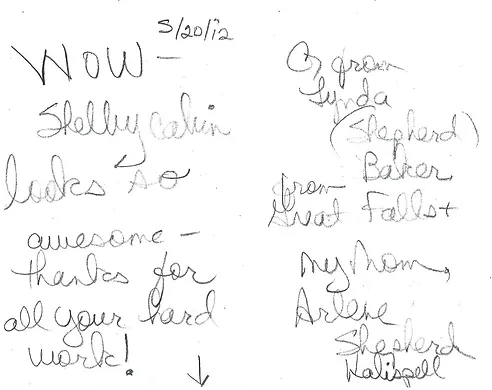 5/20/12
WOW —
Shelby cabin
looks so
awesome —
thanks for
all your hard
work!
from
Lynda
(Shepherd)
Baker
from
Great Falls +
my Mom,
Arlene
Shepherd
Kalispell